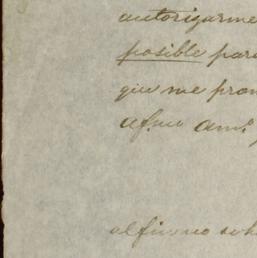 autorizarme
posible para
que me prom
af.mo am.o